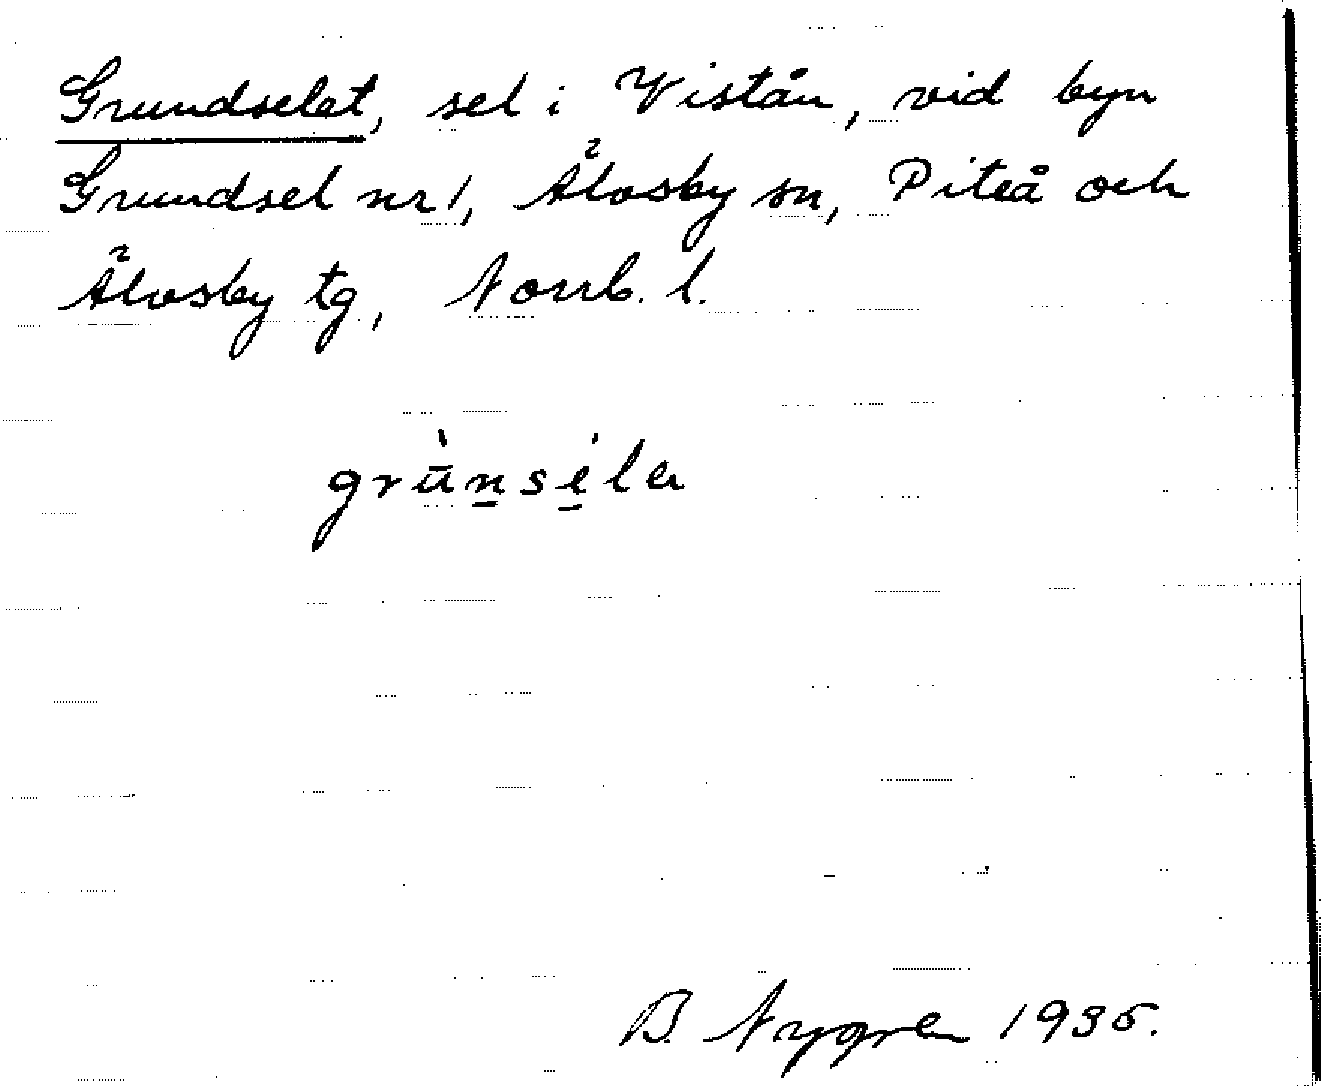 Grundselet, sel i Vistån, vid byn
Grundsel nr 1, Älvsby sn, Piteå och
Älvsby tg, Norrb. l.
B. Nygren 1935.